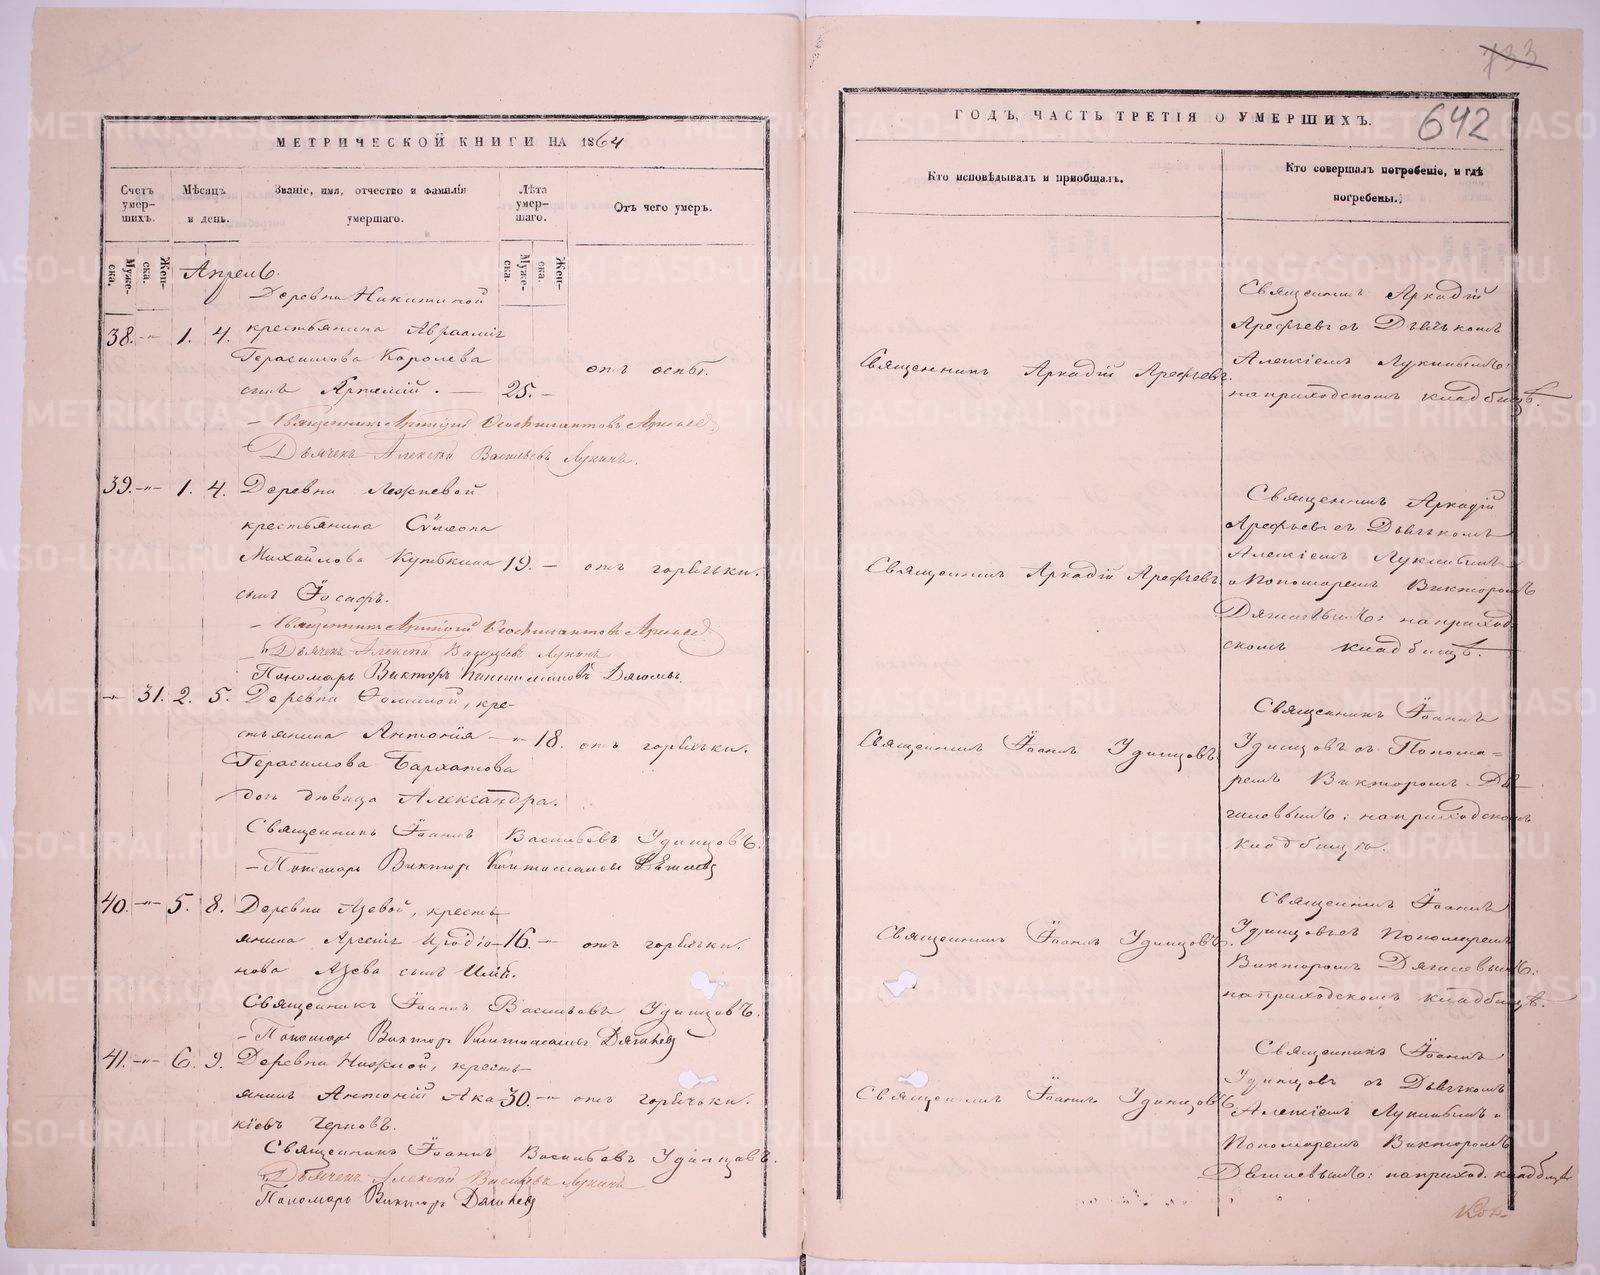 733
642
МЕТРИЧЕСКОЙ КНИГИ НА 1864
ГОДЪ, ЧАСТЬ ТРЕТІЯ О УМЕРШИХЪ.
Счетъ умер-шихъ.
Мѣсяцъ и день.
Званіе, имя, отчество и фамилія умершаго.
Лѣта умер-шаго.
Отъ чего умеръ.
Муже-ска.
Жен-ска.
Муже-ска.
Жен-ска.
Кто исповѣдывалъ и пріобщалъ.
Кто совершалъ погребеніе, и гдѣ погребены.
Апрель.
Деревни Никитиной
38. -"- 1. 4. крестьянина Авраамія
Герасимова Королева
сынъ Артемій. — 25. - отъ оспы.
Священникъ Аркадій Арефьевъ
Дьячекъ Алексѣй Васильевъ Лукинъ.
Священникъ Аркадій Арефьевъ.
Священникъ Аркадій
Арефьевъ съ Дьячкомъ
Алексіемъ Лукинымъ:
на приходскомъ кладбищѣ.
39. -"- 1. 4. Деревни
крестьянина Сѵмеона
Михайлова 19. - отъ горячки.
сынъ Іосафъ.
Священникъ Аркадій Арефьевъ
Дьячекъ Алексѣй Васильевъ Лукинъ
Пономарь Викторъ
Священникъ Аркадій Арефьевъ
Священникъ Аркадій
Арефьевъ съ Дьячкомъ
Алексіемъ Лукинымъ
и Пономаремъ Викторомъ
Дягилевымъ: на приход-
скомъ кладбищѣ.
-"- 31. 2. 5. Деревни Фоминой, кре-
стьянина Антонія -"- 18. отъ горячки.
Герасимова Бархатова
дочь дѣвица Александра.
Священникъ Іоаннъ Васильевъ Удинцовъ.
- Пономарь Викторъ Дягилевъ
Священникъ Іоаннъ Удинцовъ.
Священникъ Іоаннъ
Удинцовъ съ Понома-
ремъ Викторомъ Дя-
гилевымъ: на приходскомъ
кладбищѣ.
40. -"- 5. 8. Деревни Азевой, кресть-
янина Арсенія Иродіо- 16. - отъ горячки.
нова Азева сынъ Илія.
Священникъ Іоаннъ Васильевъ Удинцовъ.
- Пономарь Викторъ Дягилевъ
Священникъ Іоаннъ Удинцовъ.
Священникъ Іоаннъ
Удинцовъ съ Пономаремъ
Викторомъ Дягилевымъ:
на приходскомъ кладбищѣ.
41. -"- 6. 9. Деревни Нижной, кресть-
янинъ Антоній Ака- 30. -"- отъ горячки.
кіевъ Черновъ.
Священникъ Іоаннъ Васильевъ Удинцовъ.
Дьячекъ Алексѣй Васильевъ Лукинъ
Пономарь Викторъ Дягилевъ
Священникъ Іоаннъ Удинцовъ
Священникъ Іоаннъ
Удинцовъ съ Дьячкомъ
Алексіемъ Лукинымъ и
Пономаремъ Викторомъ
Дягилевымъ: на приход. кладбищѣ
METRIKI.GASO-URAL.RU